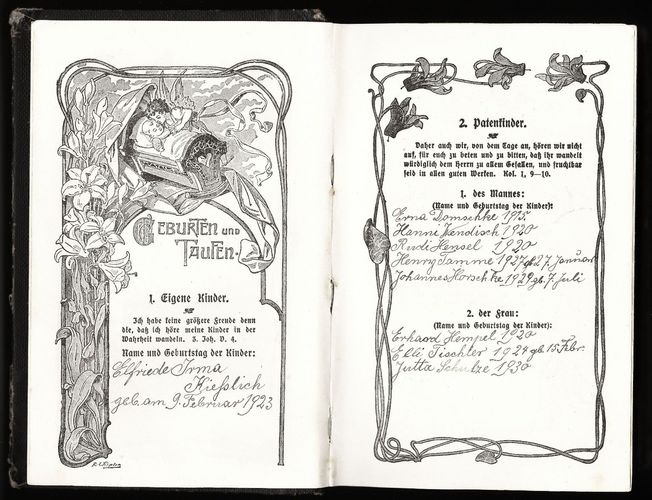 GEBURTEN UND
TAUFEN.
1. Eigene Kinder.
Ich habe keine größere Freude denn
die, daß ich höre meine Kinder in der
Wahrheit wandeln. 3. Joh. V. 4.
Name und Geburtstag der Kinder:
Elfriede Irma
Kießlich
geb. am 9. Februar 1923
2. Patenkinder.
Daher auch wir, von dem Tage an, hören wir nicht
auf, für euch zu beten und zu bitten, daß ihr wandelt
würdiglich dem Herrn zu allem Gefallen, und fruchtbar
seid in allen guten Werken. Kol. 1, 9–10.
1. des Mannes:
(Name und Geburtstag der Kinder):
Erna Domschke 1915.
Hanni Wendisch 1920
Rudi Hensel 1920
Henry Tamme 1927 7. Januar
Johannes Horschke 1929 gb. 7. Juli
2. der Frau:
(Name und Geburtstag der Kinder):
Erhard Hempel 1920
Elli Tischler 1924 gb. 15 Febr.
Jutta Schulze 1930